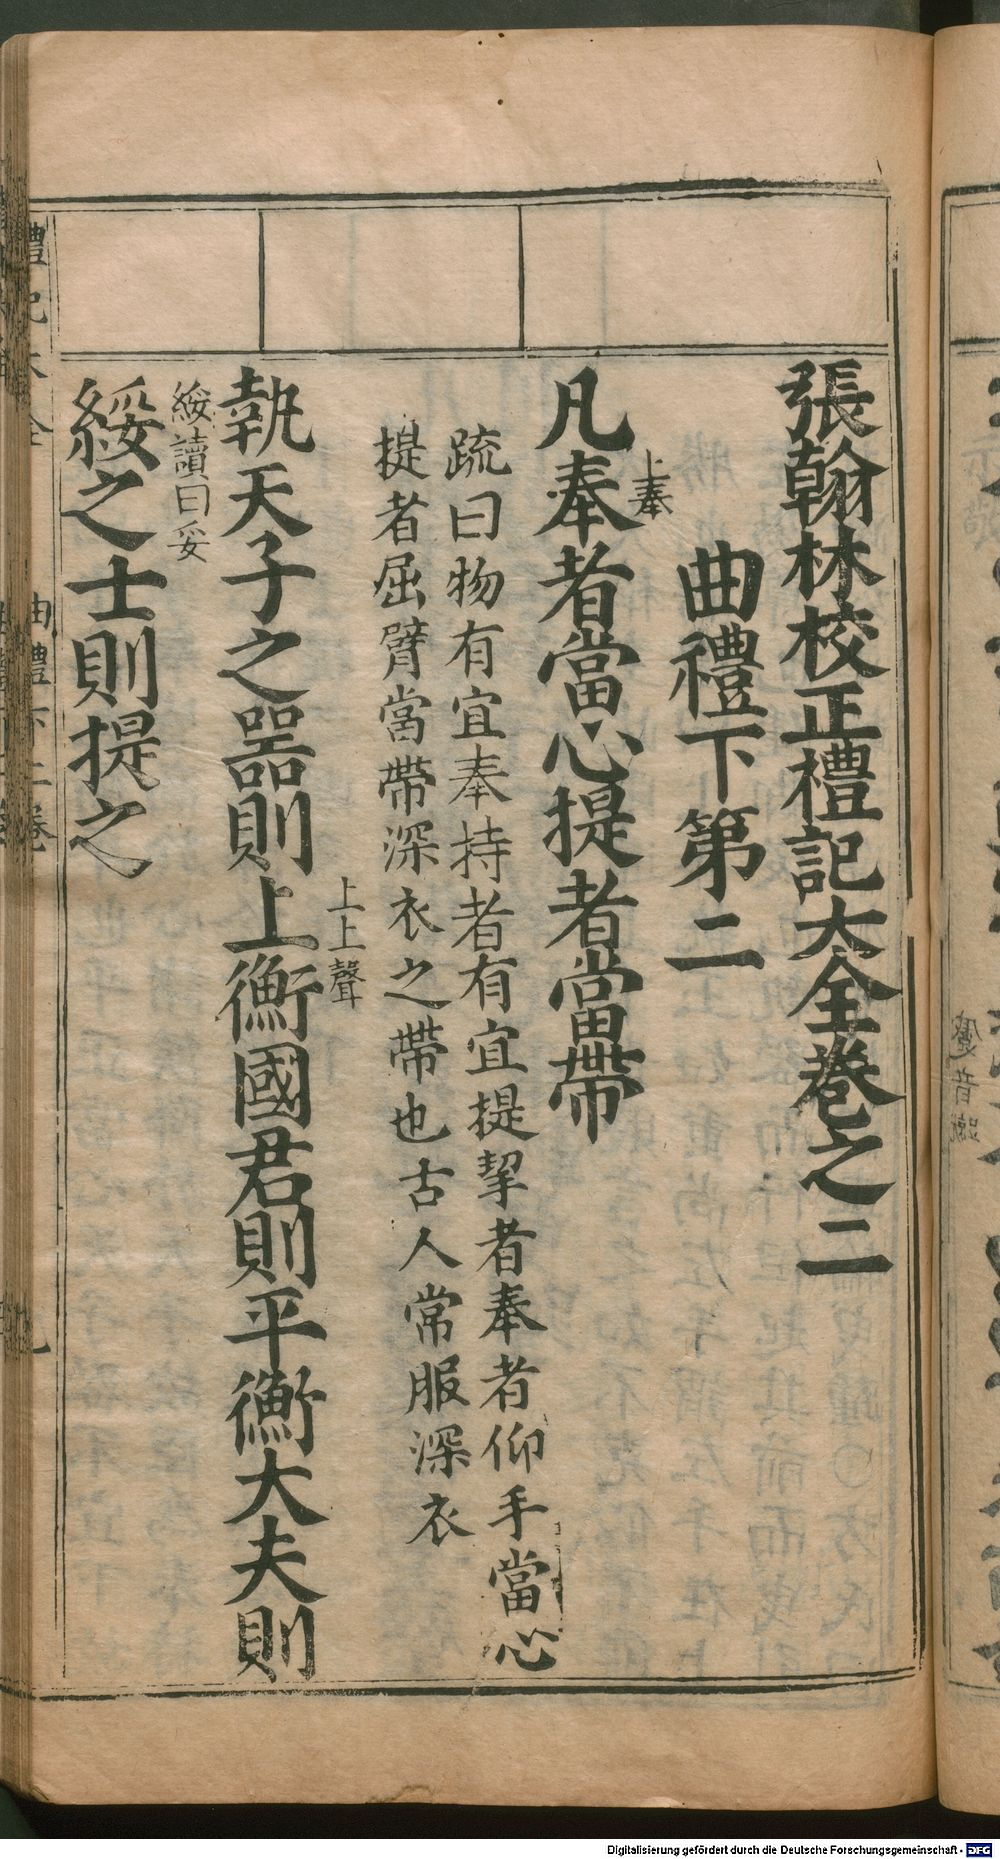 張翰林校正禮記大全卷之二
曲禮下第二
上奉
凡奉者當心提者當帶
疏曰物有宜奉持者有宜提挈者奉者仰手當心
提者屈臂當帶深衣之帶也古人常服深衣
上上聲
執天子之器則上衡國君則平衡大夫則
綏讀曰妥
綏之士則提之
Digitalisierung gefördert durch die Deutsche Forschungsgemeinschaft - DFG